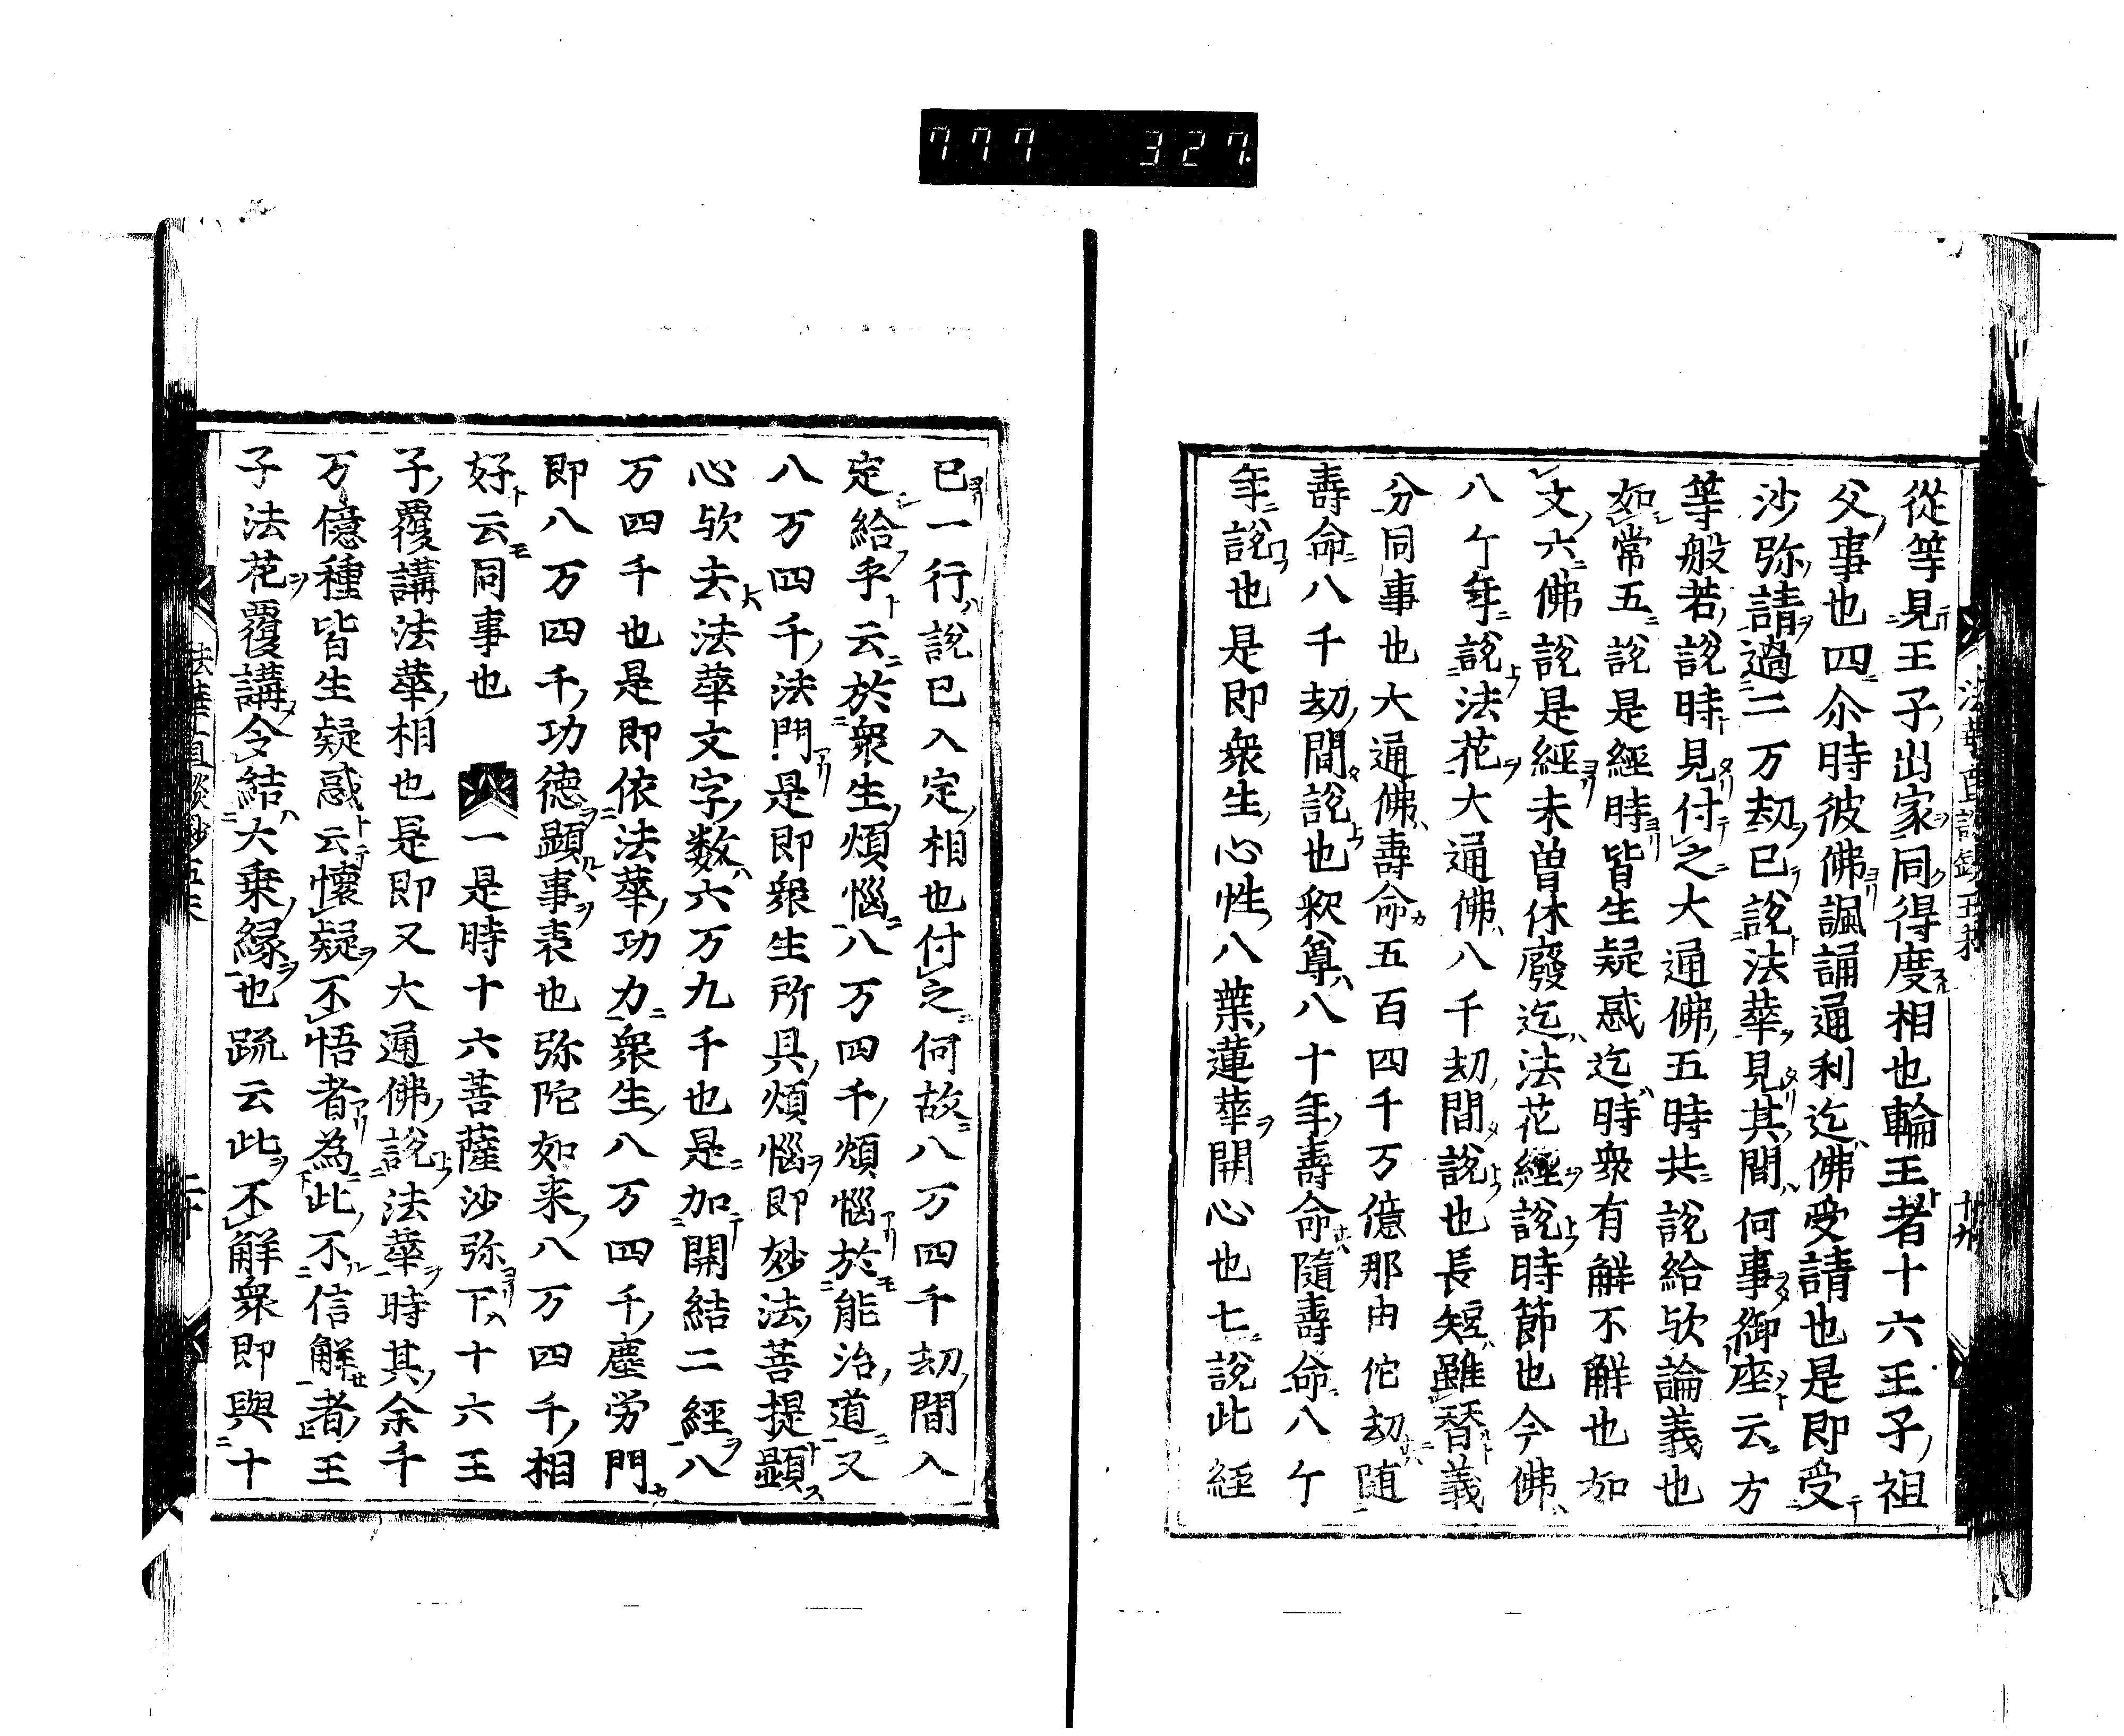 777 327.
從等見王子出家同得度相也輪王者十六王子祖
父事也四尒時彼佛諷誦通利迄佛受請也是即受
沙弥請過二万劫已說法華見其間何事御座云方
等般若說時見付之大通佛五時共說給欤論義也
如常五說是經時皆生疑惑迄時衆有解不解也如
文六佛說是經未曽休廢迄法花經說時節也今佛
八ケ年說法花大通佛八千劫間說也長短雖替義
分同事也大通佛壽命五百四千万億那由佗劫随
壽命八千劫間說也釈尊八十年壽命隨壽命八ケ
年說也是即衆生心性八葉蓮華開心也七說此経
已一行說已入定相也付之何故八万四千劫間入
定給乎云於衆生煩惱八万四千煩惱於能治道又
八万四千法門是即衆生所具煩惱即妙法菩提顯
心欤去法華文字数六万九千也是加開結二經八
万四千也是即依法華功力衆生八万四千塵労門
即八万四千功德顯事表也弥陀如来八万四千相
好云同事也 一是時十六菩薩沙弥下十六王
子覆講法華相也是即又大通佛說法華時其余千
万億種皆生疑惑云懐疑不悟者為此不信解者王
子法花覆講令結大乗緣也疏云此不解衆即與十